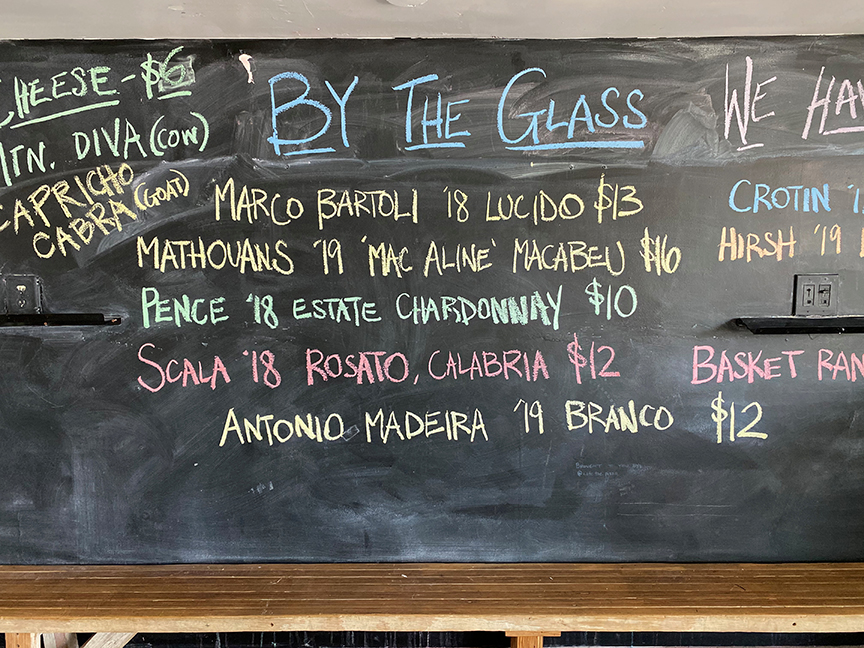 CHEESE - $6
MTN. DIVA (COW)
CAPRICHO
CABRA (GOAT)
BY THE GLASS
MARCO BARTOLI '18 LUCIDO $13
MATHOUANS '19 'MAC ALINE' MACABEU $16
PENCE '18 ESTATE CHARDONNAY $10
SCALA '18 ROSATO, CALABRIA $12
ANTONIO MADEIRA '19 BRANCO $12
WE HAV
CROTIN '1
HIRSH '19
BASKET RAN